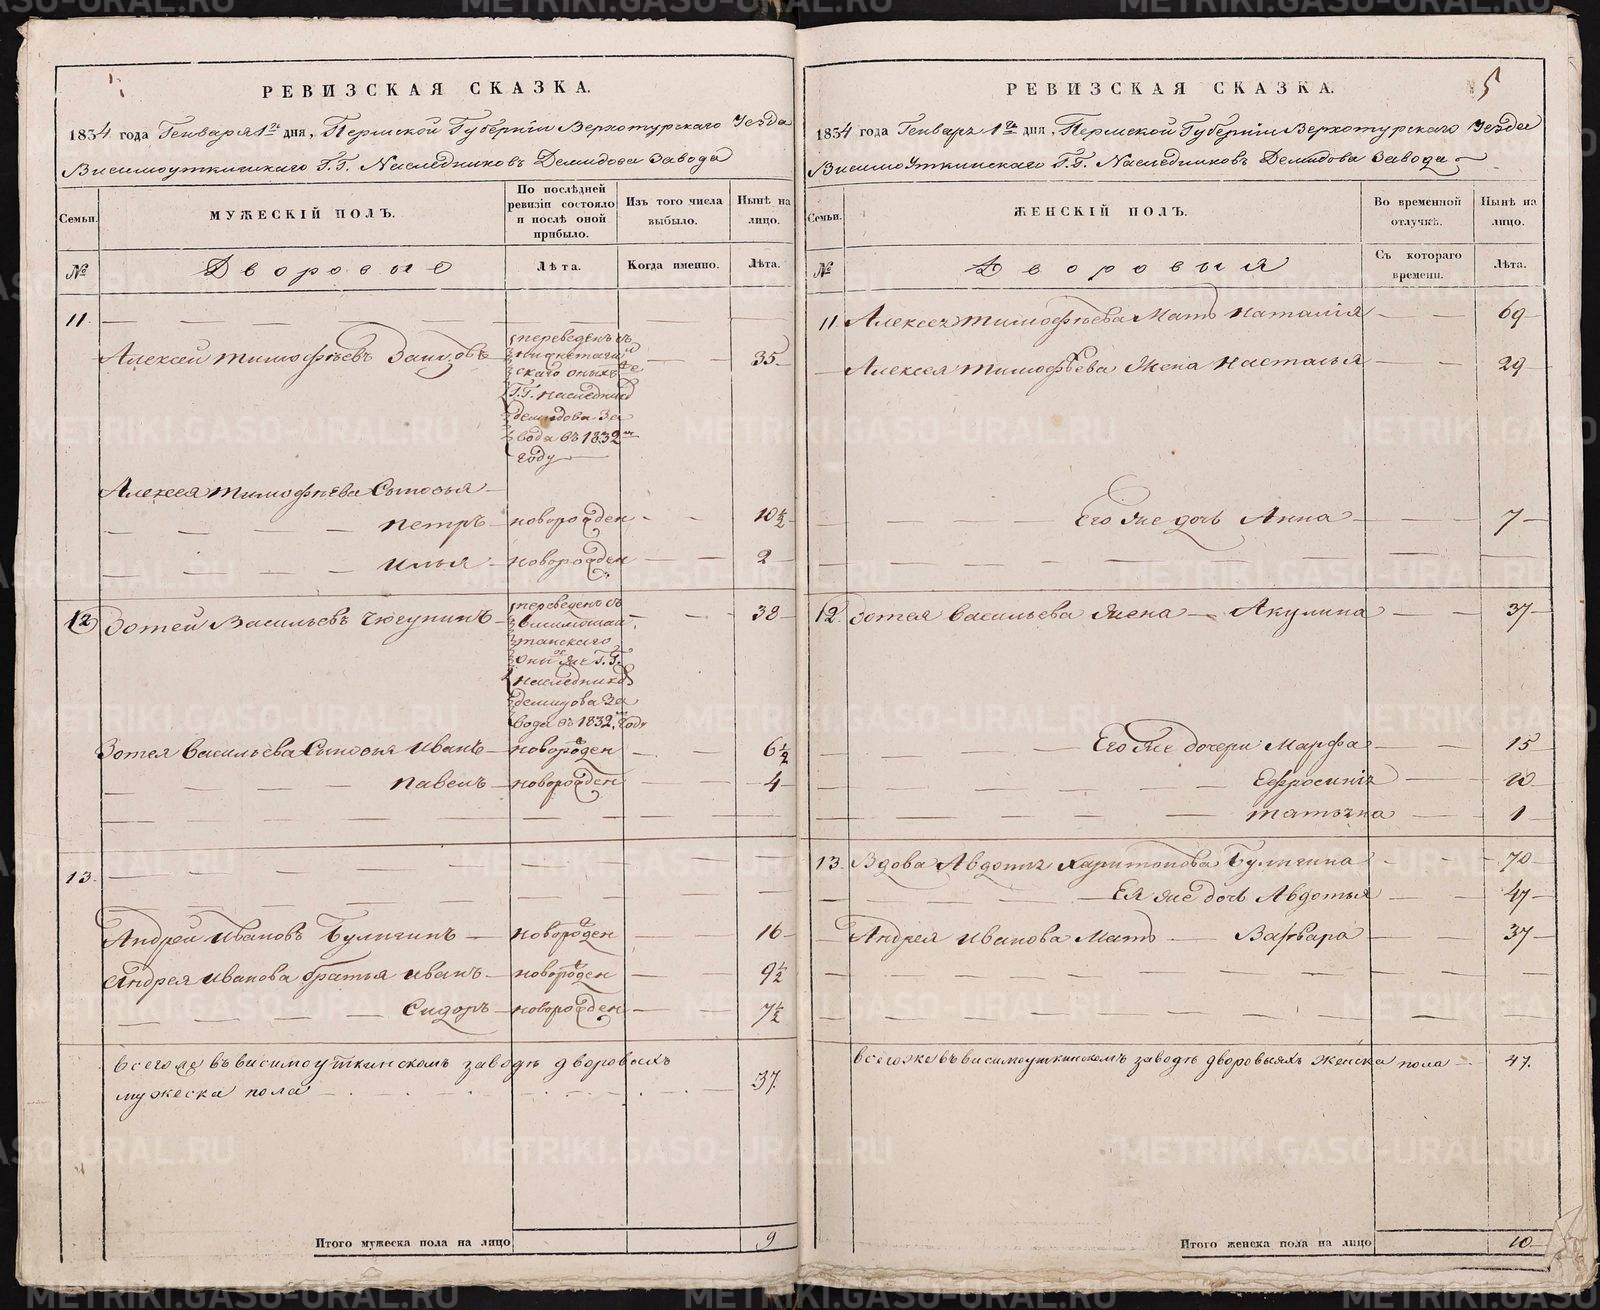 РЕВИЗСКАЯ СКАЗКА.
1834 года Генваря 1го дня, Пермской Губернiи Верхотурскаго Уезда
Висимоуткинскаго Г.Г. Наследниковъ Демидова Завода
Семьи.
МУЖЕСКIЙ ПОЛЪ.
По послѣдней ревизiи состояло и послѣ оной прибыло.
Изъ того числа выбыло.
Нынѣ на лицо.
№
Дворовые
Лѣта.
Когда именно.
Лѣта.
11.
Алексей Тимофѣевъ
переведенъ съ
Нижнетагиль
скаго оныхъ же
Г.Г. Наследник
Демидова За
вода въ 1832м
году
35
Алексея Тимофѣева Сыновья
Петръ новорожден 10½
Илья новорожден 2
12
Зотей Васильевъ
переведенъ съ
Висимошай
танскаго
оных же Г.Г.
Наследников
Демидова За
вода въ 1832м году
38
Зотея Васильева Сыновья Иванъ новорожден 6½
Павелъ новорожден 4
13.
Андрей Ивановъ Булыгинъ новорожден 16
Андрея Иванова братья Иванъ новорожден 9½
Сидоръ новорожден 7½
Всего же въ висимоуткинскомъ заводѣ дворовыхъ
мужеска пола 37.
Итого мужеска пола на лицо 9
5
РЕВИЗСКАЯ СКАЗКА.
1834 года Генваря 1го дня, Пермской Губернiи Верхотурскаго Уезда
Висимоуткинскаго Г.Г. Наследниковъ Демидова Завода
Семьи.
ЖЕНСКIЙ ПОЛЪ.
Во временной отлучкѣ.
Нынѣ на лицо.
№
Дворовыя
Съ котораго времени.
Лѣта.
11. Алексея Тимофѣева Мать Наталiя 69
Алексея Тимофѣева Жена Настасья 29
Его же дочь Анна 7
12. Зотея Васильева жена Акулина 37
Его же дочери Марфа 15
Ефросинiя 10
Татьяна 1
13. Вдова Авдотья Харитонова Булыгина 70
Ея же дочь Авдотья 47
Андрея Иванова Мать Варвара 37
Всего же въ висимоуткинскомъ заводѣ дворовыхъ женска пола 47.
Итого женска пола на лицо 10
METRIKI.GASO-URAL.RU